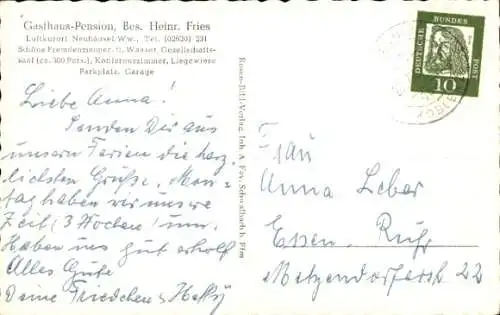 Gasthaus-Pension, Bes. Heinr. Fries
Luftkurort Neuhäusel Ww., Tel. (02620) 231
Schöne Fremdenzimmer, fl. Wasser, Gesellschafts-
saal (ca. 300 Pers.), Konferenzzimmer, Liegewiese
Parkplatz, Garage
Liebe Anna!
Senden Dir aus
unsern Ferien die herz-
lichsten Grüße. Mon-
tag haben wir unsre
Zeit (3 Wochen) um.
Haben uns gut erholt
Alles Gute
Deine Friedchen &
Rosen-Bild-Verlag, Inh. A. Fay, Schwalbach b. Ffm
DEUTSCHE BUNDESPOST
10
Frau
Anna Leber
Essen, Ruhr
Metzendorferstr. 22